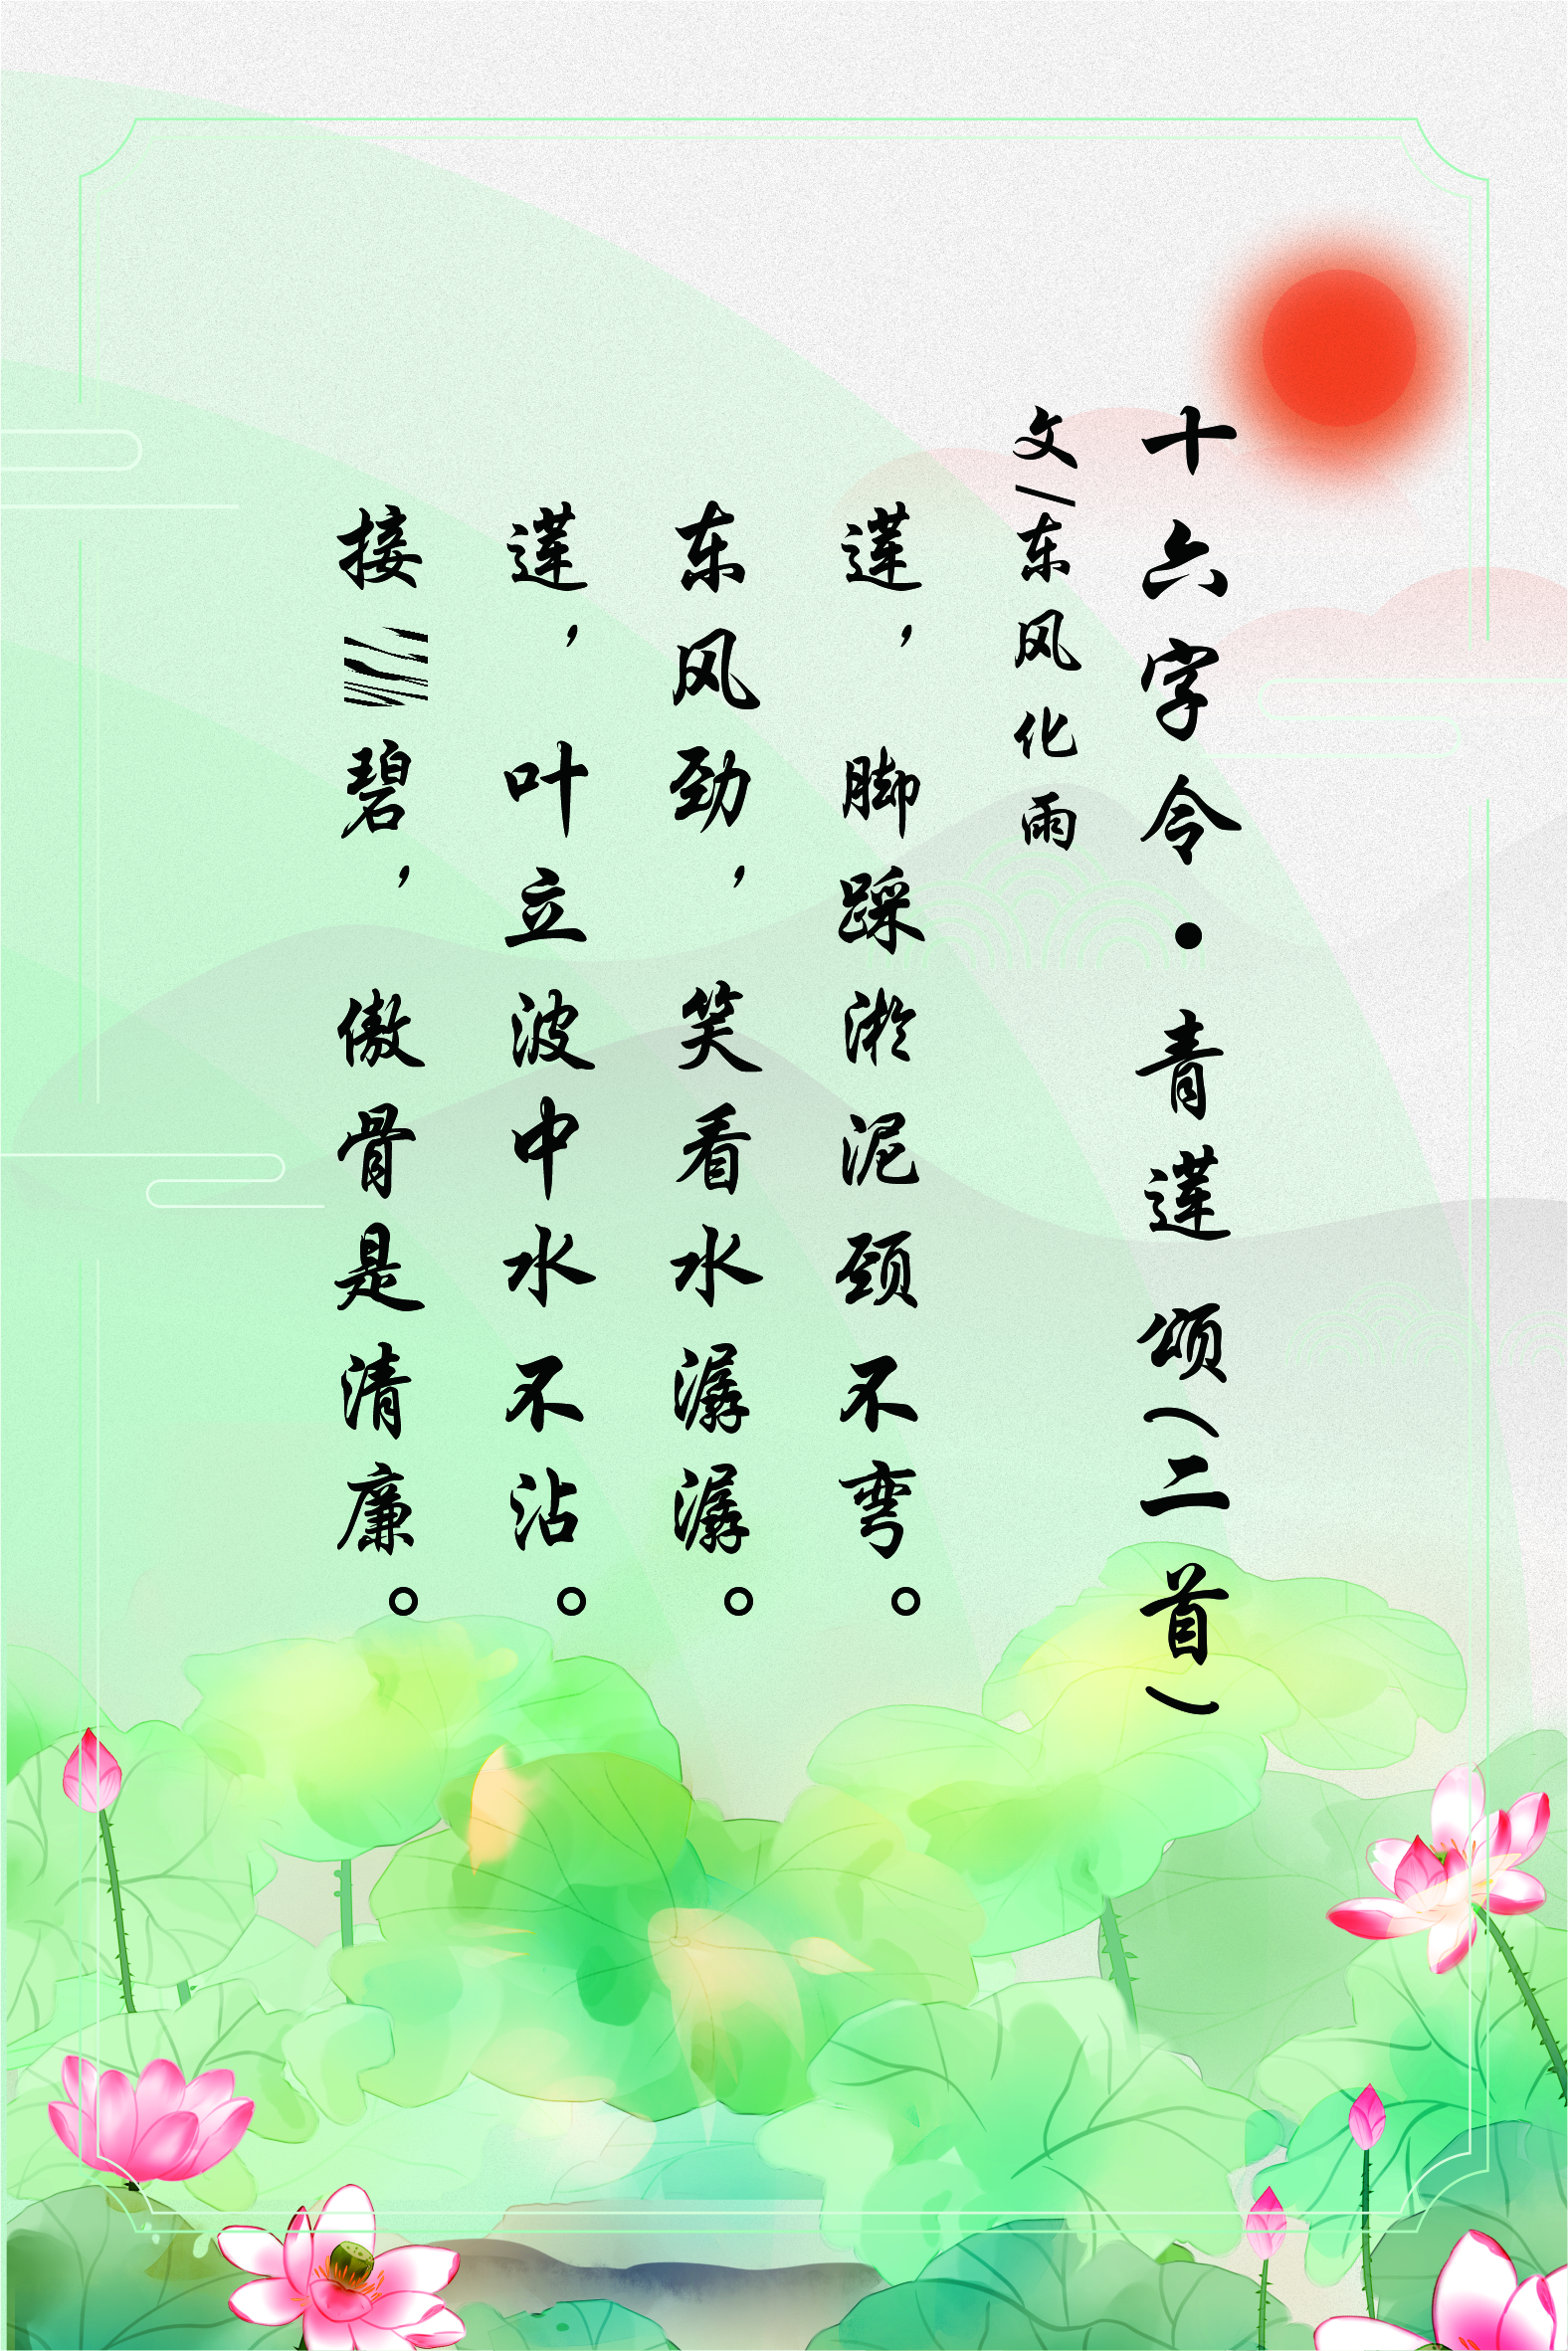 十六字令•青莲颂(二首)
文/东风化雨
莲，脚踩淤泥颈不弯。
东风劲，笑看水潺潺。
莲，叶立波中水不沾。
接碧，傲骨是清廉。